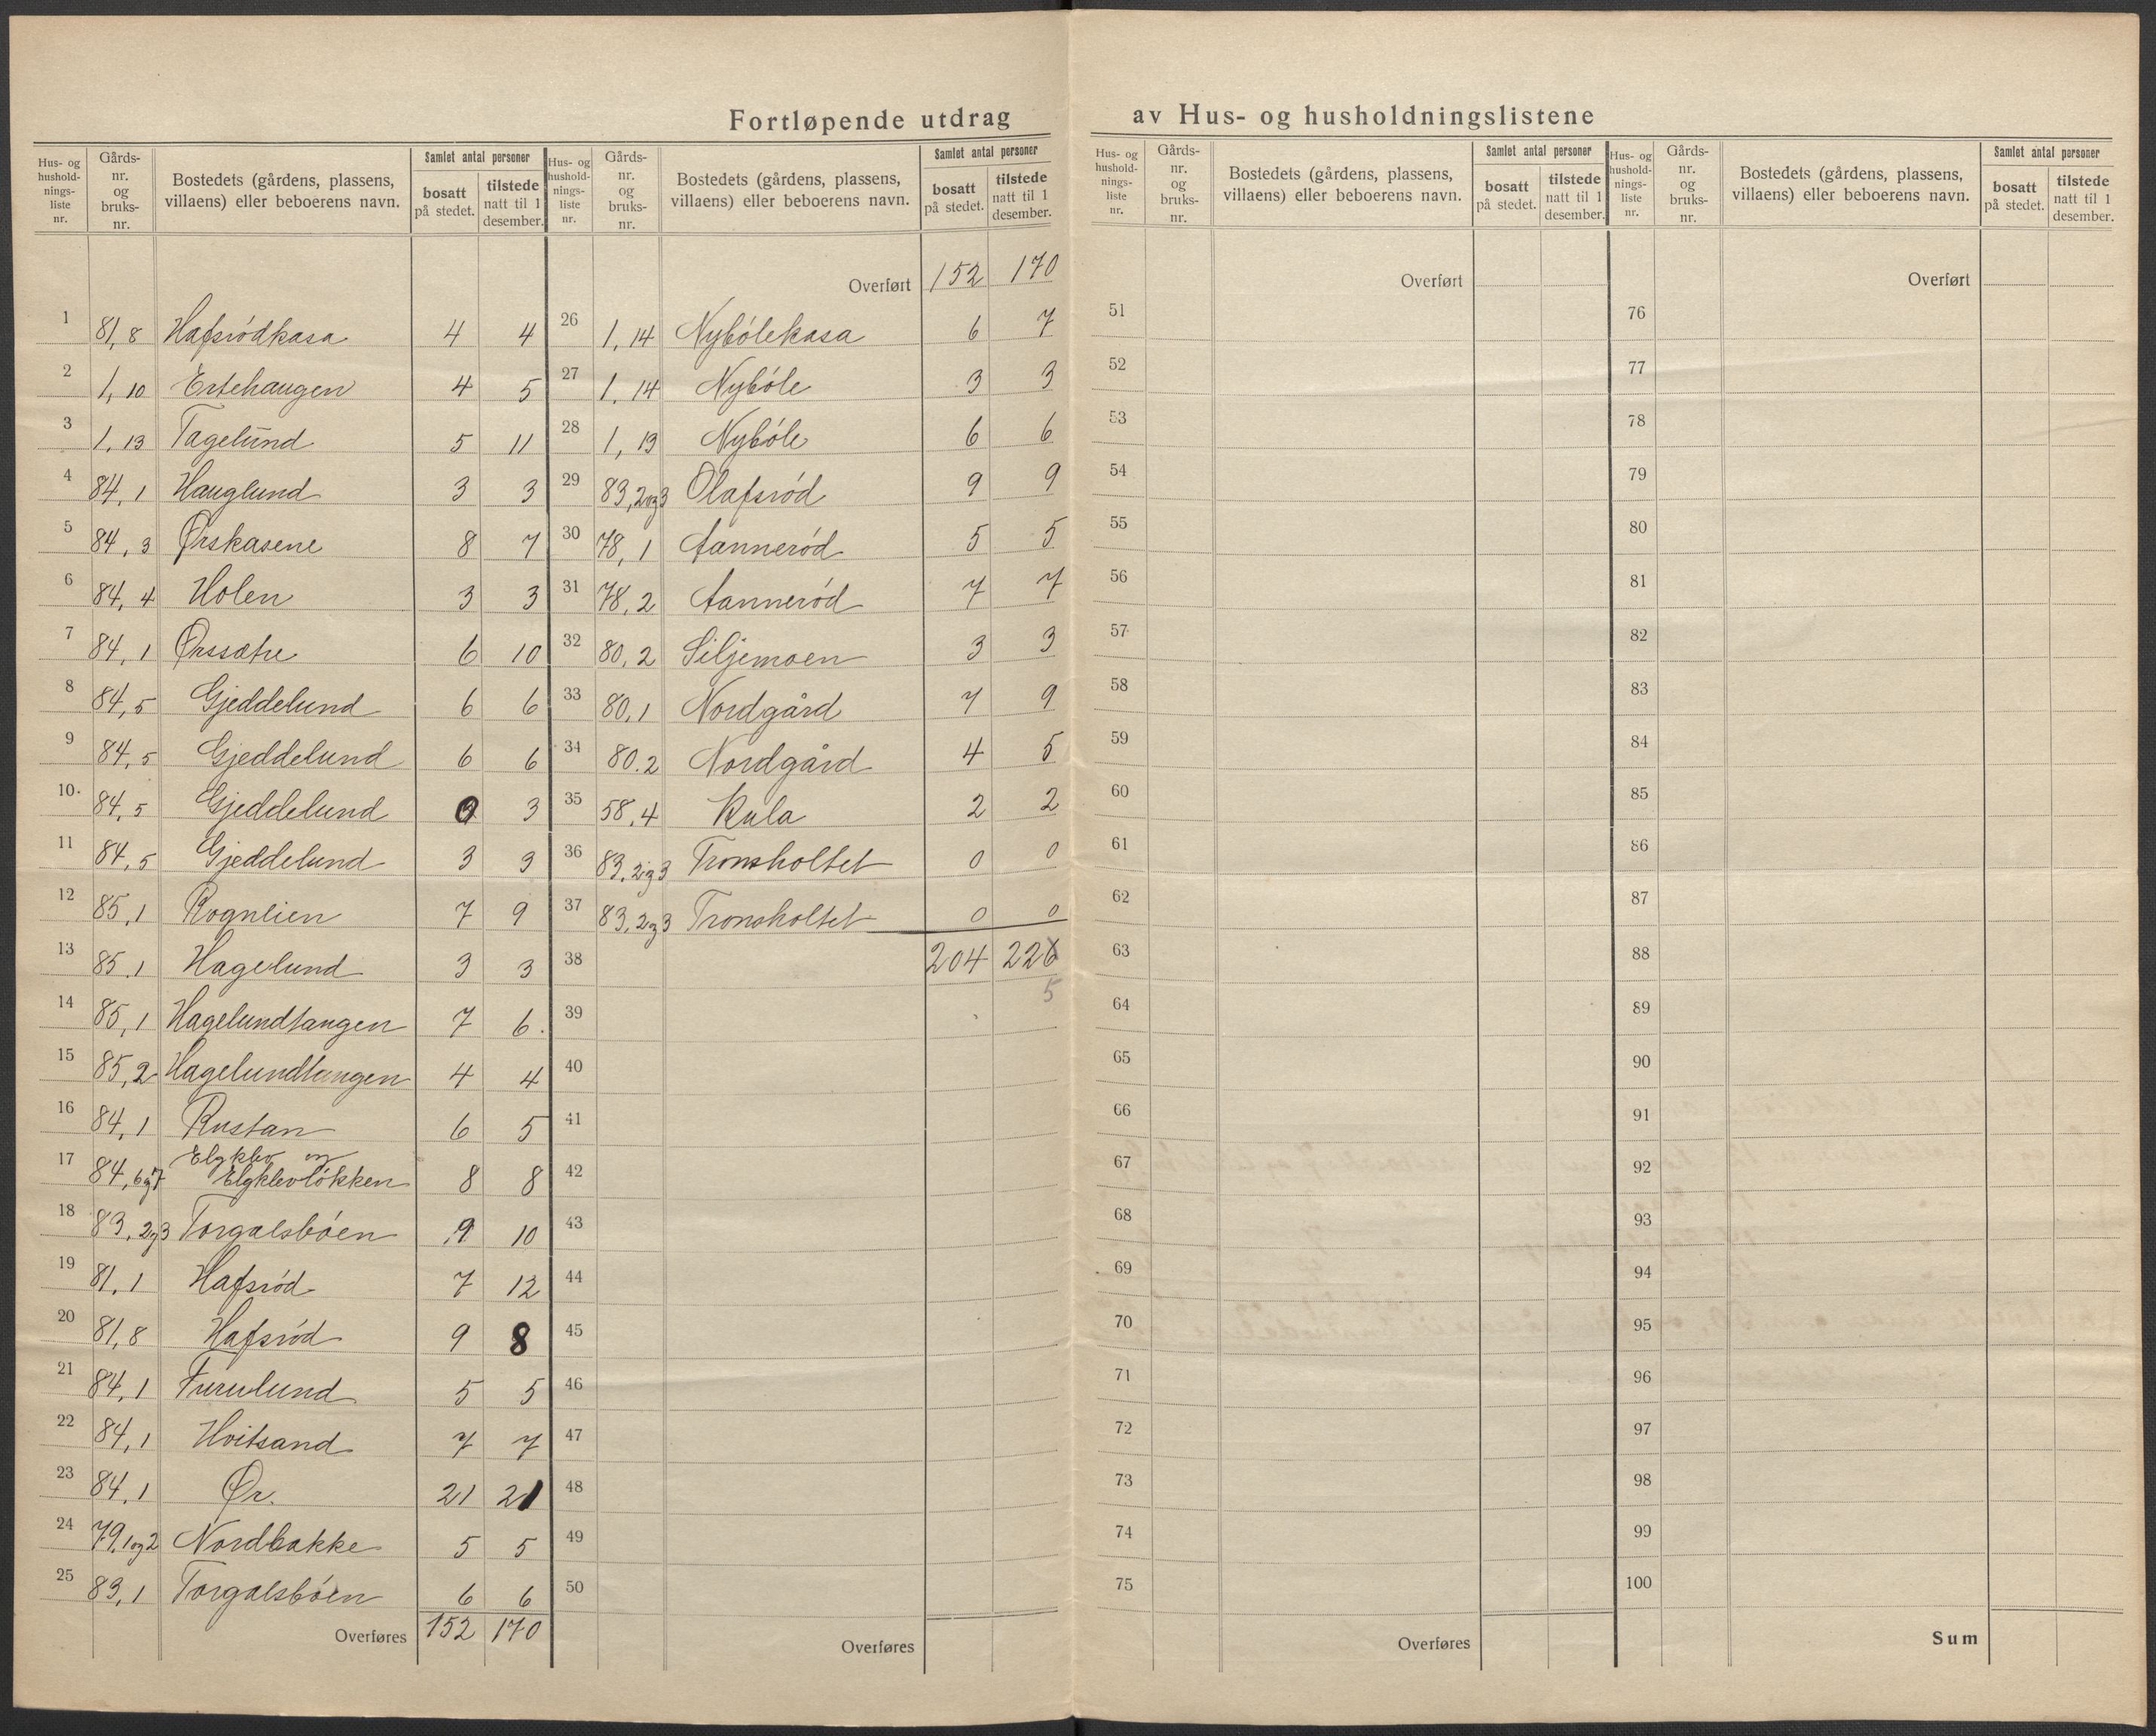 Fortløpende utdrag av Hus- og husholdningslistene
Hus- og hushold- nings- liste nr. | Gårds- nr. og bruks- nr. | Bostedets (gårdens, plassens, villaens) eller beboerens navn. | Samlet antal personer | bosatt på stedet. | tilstede natt til 1 desember.
1 81,8 Hafsrødkasa 4 4
2 1,10 Ertehaugen 4 5
3 1,13 Tagelund 5 11
4 84,1 Hauglund 3 3
5 84,3 Ørskasene 8 7
6 84,4 Holen 3 3
7 84,1 Ørssætre 6 10
8 84,5 Gjeddelund 6 6
9 84,5 Gjeddelund 6 6
10 84,5 Gjeddelund 0 3
11 84,5 Gjeddelund 3 3
12 85,1 Rognlien 7 9
13 85,1 Hagelund 3 3
14 85,1 Hagelundtangen 7 6
15 85,2 Hagelundtangen 4 4
16 84,1 Rustan 6 5
17 84,6og7 Elgklev og
Elgklevløkken 8 8
18 83,2og3 Torgalsbøen 9 10
19 81,1 Hafsrød 7 12
20 81,8 Hafsrød 9 8
21 84,1 Furulund 5 5
22 84,1 Hvitsand 7 7
23 84,1 Ør. 21 21
24 79,1og2 Nordbakke 5 5
25 83,1 Torgalsbøen 6 6
Overføres 152 170
Hus- og hushold- nings- liste nr. | Gårds- nr. og bruks- nr. | Bostedets (gårdens, plassens, villaens) eller beboerens navn. | Samlet antal personer | bosatt på stedet. | tilstede natt til 1 desember.
Overført 152 170
26 1,14 Nybølekasa 6 7
27 1,14 Nybøle 3 3
28 1,13 Nybøle 6 6
29 83,2og3 Olafsrød 9 9
30 78,1 Aannerød 5 5
31 78,2 Aannerød 7 7
32 80,2 Siljemoen 3 3
33 80,1 Nordgård 7 9
34 80.2 Nordgård 4 5
35 58,4 Kula 2 2
36 83,2og3 Tronsholtet 0 0
37 83,2og3 Tronsholtet 0 0
38 204 226
5
39
40
41
42
43
44
45
46
47
48
49
50
Overføres
Hus- og hushold- nings- liste nr. | Gårds- nr. og bruks- nr. | Bostedets (gårdens, plassens, villaens) eller beboerens navn. | Samlet antal personer | bosatt på stedet. | tilstede natt til 1 desember.
Overført
51
52
53
54
55
56
57
58
59
60
61
62
63
64
65
66
67
68
69
70
71
72
73
74
75
Overføres
Hus- og hushold- nings- liste nr. | Gårds- nr. og bruks- nr. | Bostedets (gårdens, plassens, villaens) eller beboerens navn. | Samlet antal personer | bosatt på stedet. | tilstede natt til 1 desember.
Overført
76
77
78
79
80
81
82
83
84
85
86
87
88
89
90
91
92
93
94
95
96
97
98
99
100
Sum